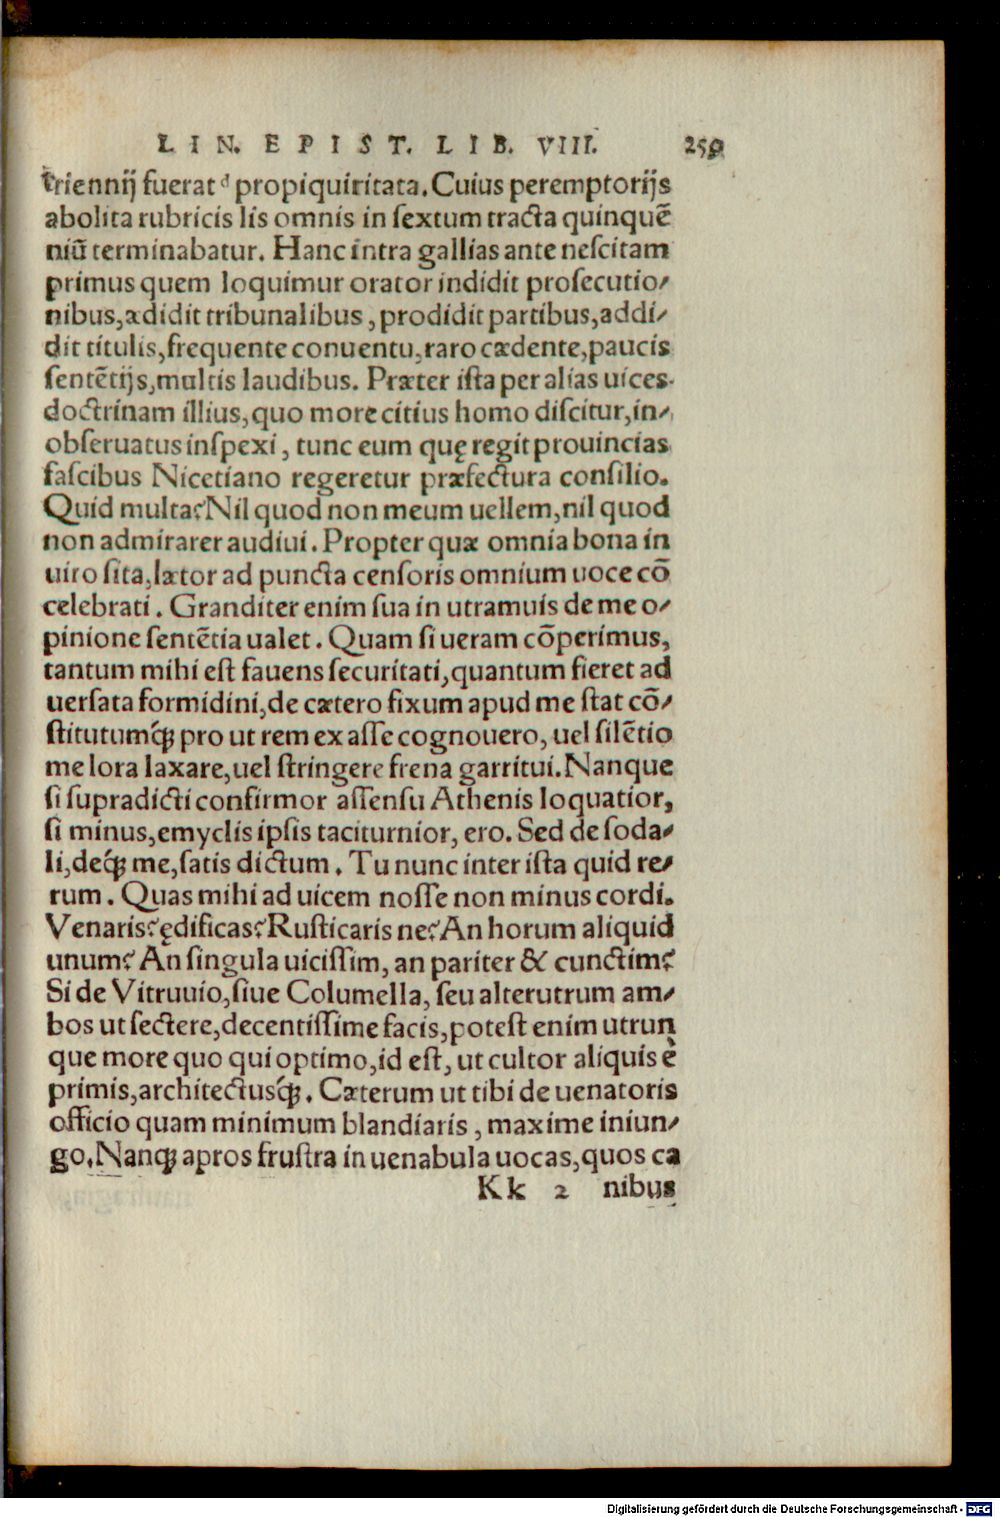 LIN. EPIST. LIB. VIII. 259
triennij fuerat propiquiritata. Cuius peremptorijs
abolita rubricis lis omnis in ſextum tracta quinquē
niū terminabatur. Hanc intra gallias ante neſcitam
primus quem loquimur orator indidit proſecutio⸗
nibus, ædidit tribunalibus, prodidit partibus, addi⸗
dit titulis, frequente conuentu, raro cædente, paucis
ſentētijs, multis laudibus. Præter iſta per alias uices
doctrinam illius, quo more citius homo diſcitur, in⸗
obſeruatus inſpexi, tunc eum quę regit prouincias
faſcibus Nicetiano regeretur præfectura conſilio.
Quid multa? Nil quod non meum uellem, nil quod
non admirarer audiui. Propter quæ omnia bona in
uiro ſita, lætor ad puncta cenſoris omnium uoce cō
celebrati. Granditer enim ſua in utramuis de me o⸗
pinione ſentētia ualet. Quam ſi ueram cōperimus,
tantum mihi eſt fauens ſecuritati, quantum fieret ad
uerſata formidini, de cætero fixum apud me ſtat cō⸗
ſtitutumq́ꝫ pro ut rem ex aſſe cognouero, uel ſilētio
me lora laxare, uel ſtringere frena garritui. Nanque
ſi ſupradicti confirmor aſſenſu Athenis loquatior,
ſi minus, emyclis ipſis taciturnior, ero. Sed de ſoda⸗
li, deq́ꝫ me, ſatis dictum. Tu nunc inter iſta quid re⸗
rum. Quas mihi ad uicem noſſe non minus cordi.
Venaris? ędificas? Ruſticaris ne? An horum aliquid
unum? An ſingula uiciſſim, an pariter & cunctim?
Si de Vitruuio, ſiue Columella, ſeu alterutrum am⸗
bos ut ſectere, decentiſſime facis, poteſt enim utrun
que more quo qui optimo, id eſt, ut cultor aliquis è
primis, architectusq́ꝫ. Cæterum ut tibi de uenatoris
officio quam minimum blandiaris, maxime iniun⸗
go. Nanqꝫ apros fruſtra in uenabula uocas, quos ca
Kk 2 nibus
Digitalisierung gefördert durch die Deutsche Forschungsgemeinschaft - DFG